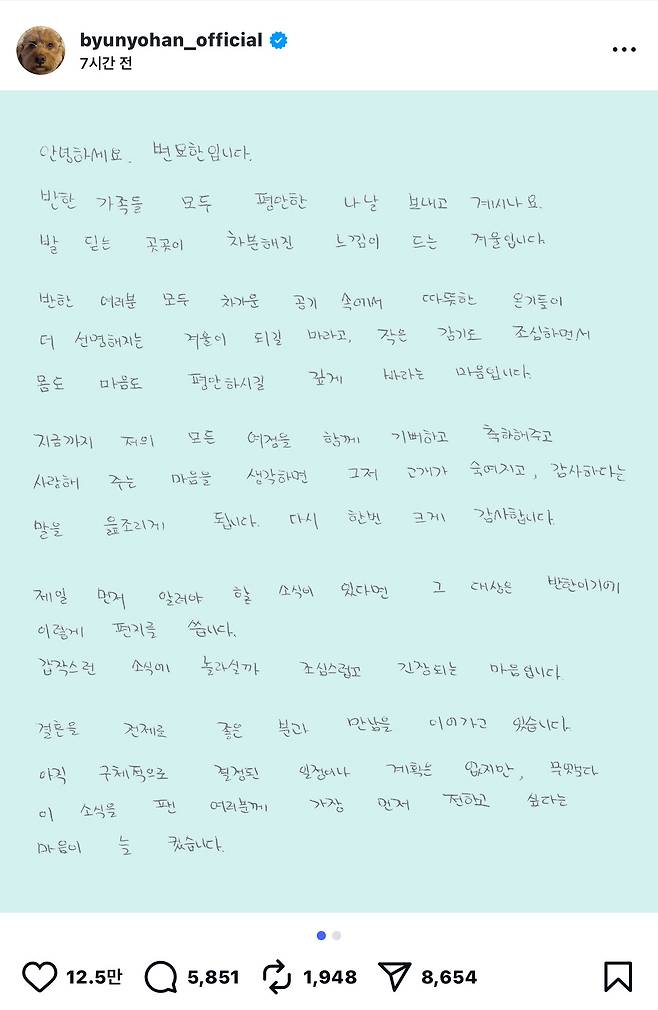 byunyohan_official
7시간 전
안녕하세요. 변요한입니다.
반한 가족들 모두 평안한 나날 보내고 계시나요.
발 딛는 곳곳이 차분해진 느낌이 드는 겨울입니다
반한 여러분 모두 차가운 공기 속에서 따뜻한 온기들이
더 선명해지는 겨울이 되길 바라고, 작은 감기도 조심하면서
몸도 마음도 평안하시길 깊게 바라는 마음입니다.
지금까지 저의 모든 여정을 함께 기뻐하고 축하해주고
사랑해 주는 마음을 생각하면 그저 고개가 숙여지고, 감사하다는
말을 읊조리게 됩니다. 다시 한번 크게 감사합니다.
제일 먼저 알려야 할 소식이 있다면 그 대상은 반한이기에
이렇게 편지를 씁니다.
갑작스런 소식에 놀라실까 조심스럽고 긴장되는 마음입니다.
결혼을 전제로 좋은 분과 만남을 이어가고 있습니다.
아직 구체적으로 결정된 일정이나 계획은 없지만, 무엇보다
이 소식을 팬 여러분께 가장 먼저 전하고 싶다는
마음이 늘 컸습니다.
12.5만 5,851 1,948 8,654